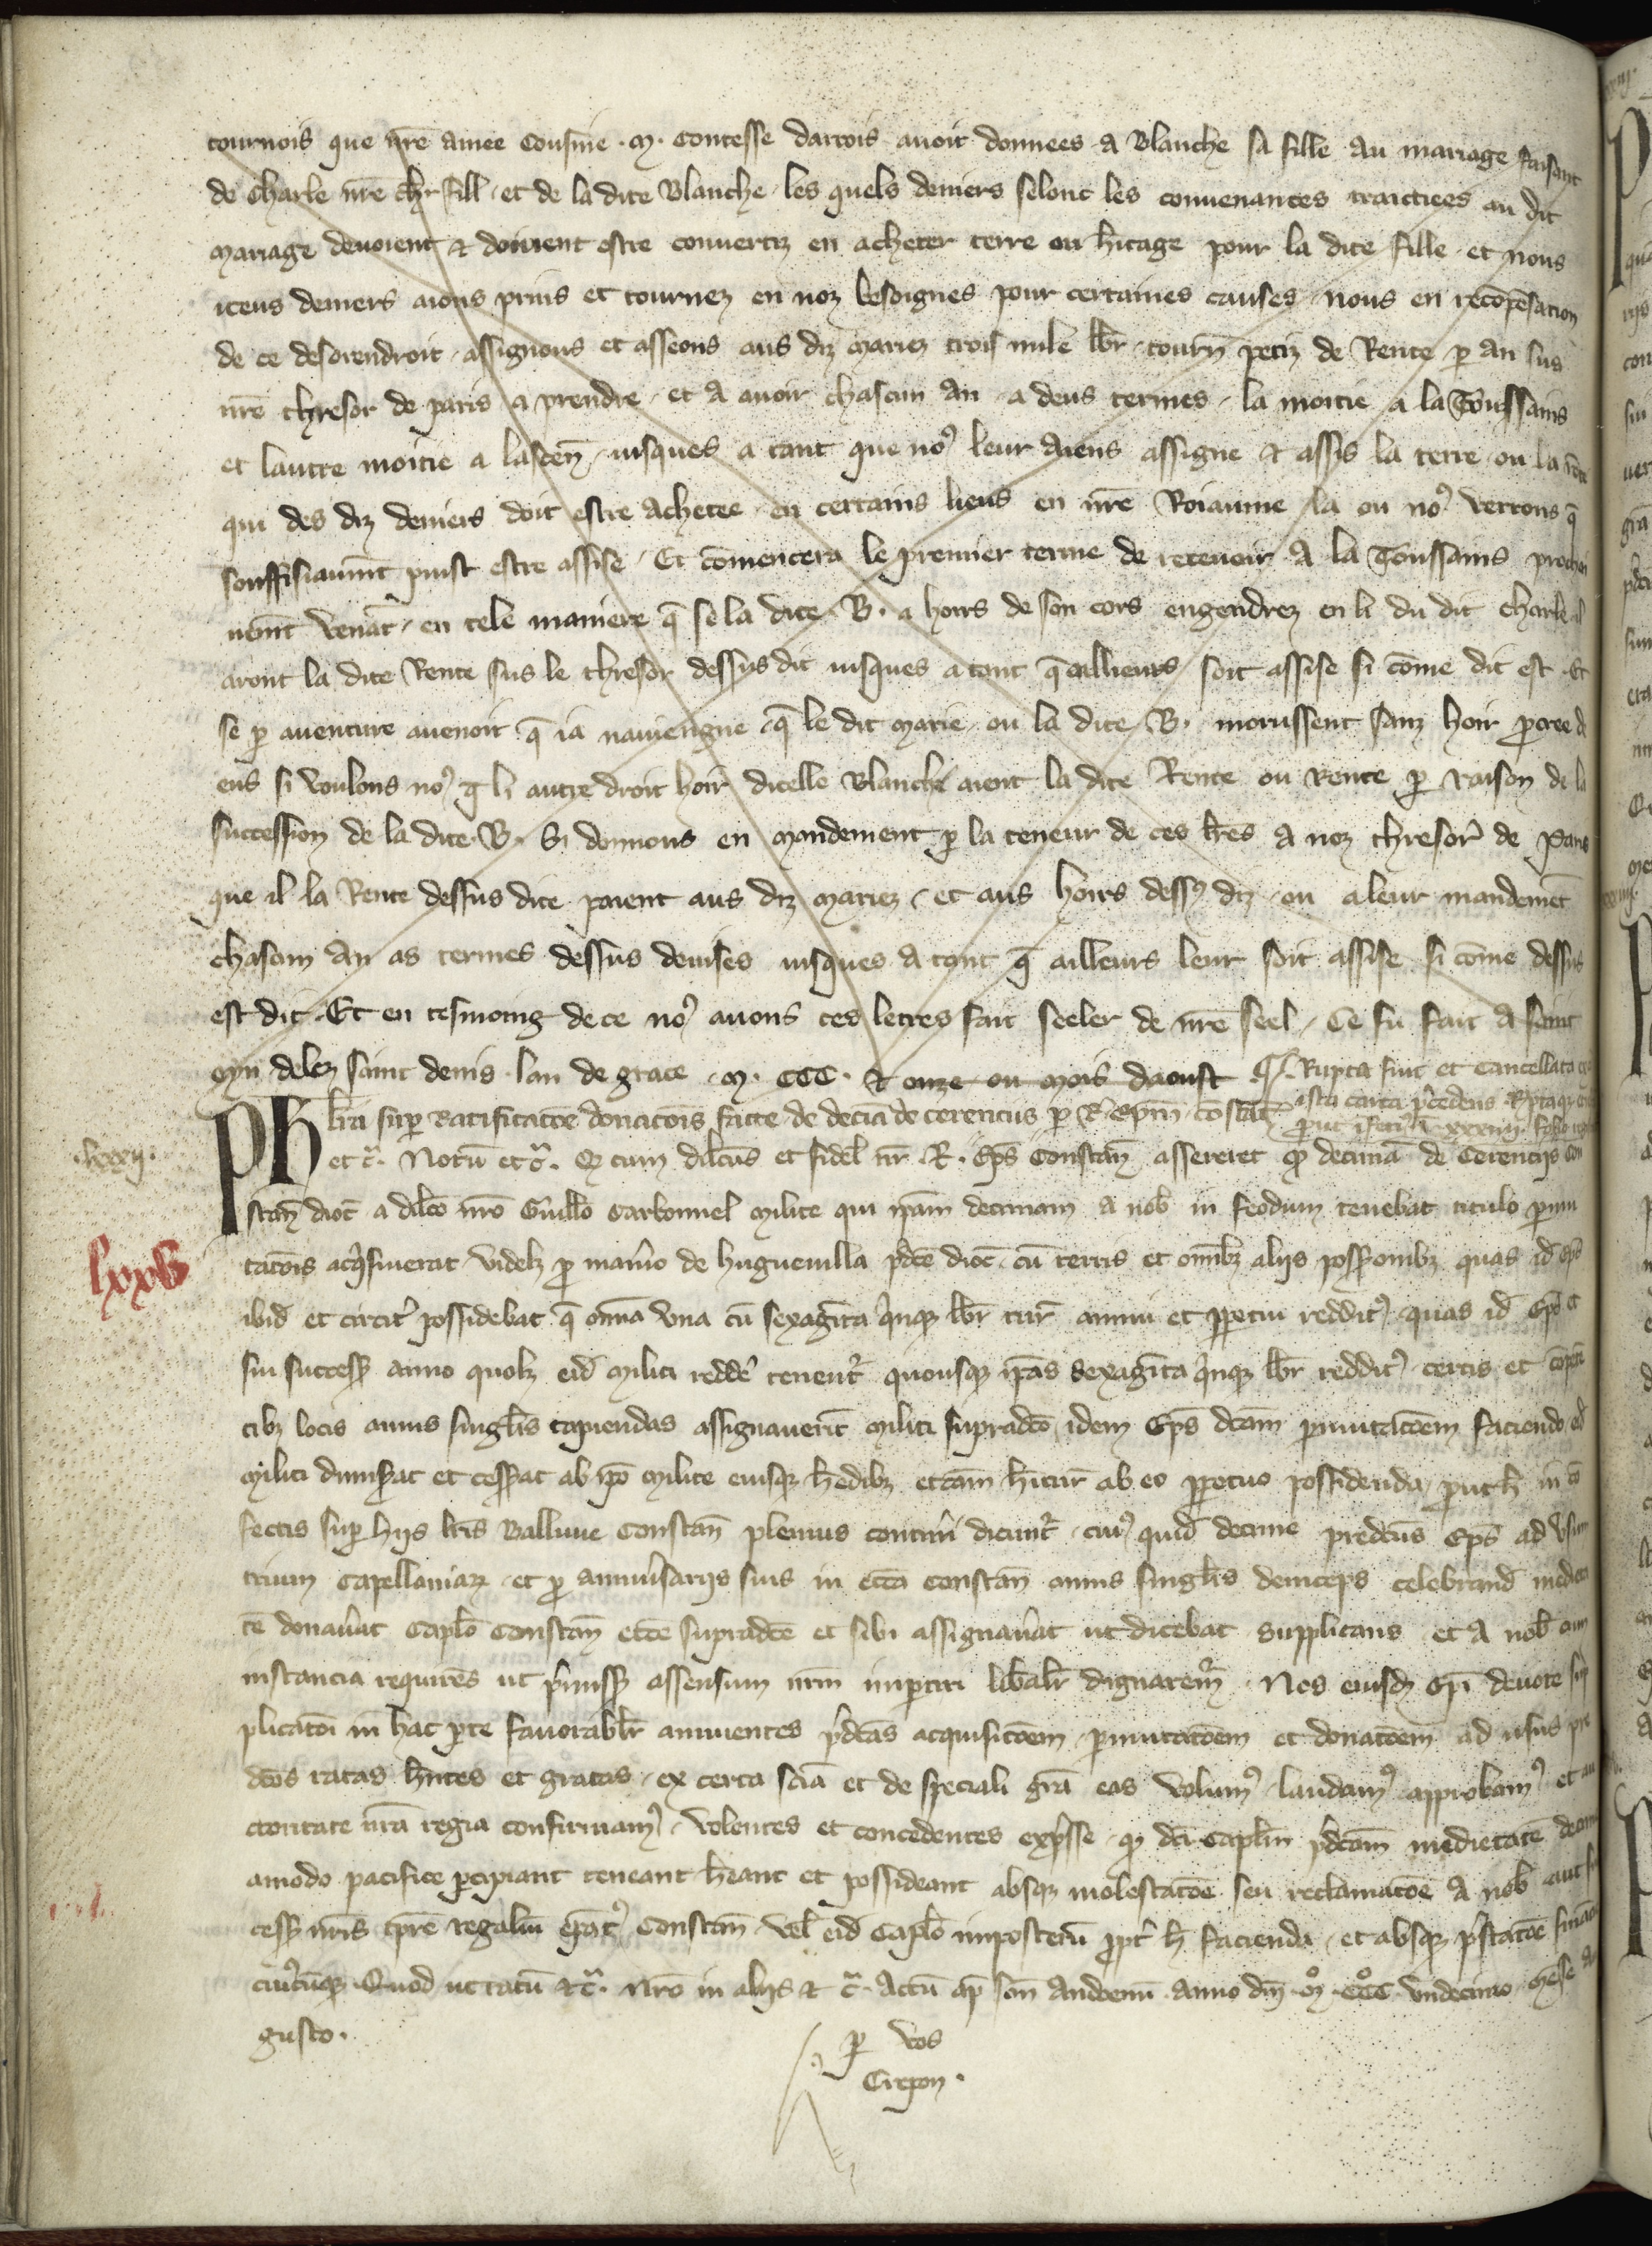 tournois que nr̄e amee Cousine · M · Contesse dartois auoit donnees a Blanche sa fille au mariage faisant
de Charle nr̄e chr fill · et de la dite Blanche · les quels deniers selonc les conuenances traictiees au dit
mariage deuoient & doiuent estre conuertiz en acheter terre ou hitage pour la dite fille · et nous
iceus deniers aions prins et tournez en noz besoignes pour certaines causes · nous en recōpēsation
de ce desorendroit · assignons et asseons aus diz mariez trois mile lb̄r · tourn̄ petiz de Rente p an sus
nr̄e thresor de paris a prendre · et a auoir chascun an · a deus termes · la moitie a la Toussains
et lautre moitie a lascen̄ · iusques a tant que noꝰ leur aiens assigne & assis la terre · ou la
qui des diz deniers doit estre achetee · en certains lieus en nr̄e Roiaume la ou noꝰ verrons q̄
souffisiaumt puist estre assise · Et cōmencera le premier terme de receuoir a la Toussains prochei
nemt venāt · en tele maniere q̄ se la dite · B · a hoirs de son cors engendrez en li du dit charle il
aront la dite Rente sus le thresor dessus dit iusques a tant q̄ aillieurs soit assise si cōme dit est · Et
se p auenture auenoit q̄ ia nauiengne · q̄ le dit marie · ou la dite · B · morussent sanz hoir procree d
eus si voulons noꝰ q̄ li autre droit hoir dicelle Blanche aient la dite Rente ou rente p raison de la
succession de la dite · B · Si donnons en mandement p la teneur de ces lr̄es a noz thresor̄ de Paris
que il la Rente dessus dite paient aus diz mariez · et aus hoirs dessꝰ diz · ou a leur mandemēt
chascun an as termes dessus deuises iusques a tant q̄ ailleurs leur soit assise si cōme dessus
est dit · Et en tesmoing de ce noꝰ auons ces letres fait seeler de nr̄e seel · Ce fu fait a saint
Oyn delez saint denis · lan de grace · M · CCC · & onze ou mois daoust ¶ Rupta fuit et Cancellata
ista carta p̄cedens
lr̄a sup ratificatōe donatōis facte de decīa de cerencijs p R · ep̄m · constāt
· lxxxij ·
PH et c̄ · Notū et c̄ · Qꝫ cum dilc̄us et fidel̄ nr̄ · R · Ep̄s Constan̄ assereret qꝫ decimā de Cerencijs Con
stan̄ dioc̄ a dilc̄o nr̄o Guillo Carbonnel milite qui ip̄am decimam a nob̄ in feodum tenebat titulo pmu
lxxv
tatōis acq̄siuerat videlꝫ p man̄io de hugueuilla p̄dc̄e dioc̄ cū terris et omībꝫ alijs possꝫonibꝫ quas id ep̄s
ibid et circit̄ possidebat q̄ om̄ia vna cū sexaginta q̄nqꝫ lb̄r tur̄ annui et ppetui redditꝰ quas id Ep̄s et
sui successꝫ anno quolꝫ eid militi reddē tenent̄ quousqꝫ ip̄as sexaginta q̄nqꝫ lb̄r redditꝰ · certis et
tibꝫ locis annis singlis capiendas assignauerīt militi supradc̄o idem Ep̄s dc̄am pmutatōem faciendo
militi dimiserat et cesserat ab ip̄o milite eiusqꝫ h̄edibꝫ et cām h̄itur̄ ab eo ppetuo possidenda · prout h̄ in cō
fectis sup hijs lr̄is Balliuie Constan̄ plenius contineri dicunt̄ · cuiꝰ quid decime predc̄us Ep̄s ad vsum
trium Capellaniaꝝ · et p anniuersarijs suis in ecc̄a Constan̄ annis singlis deinceps celebrand
donauerat Caplo Constan̄ ecc̄e supradc̄e et sibi assignauerat ut dicebat supplicans et a nob̄ cum
instancia requirēs ut p̄missꝫ assensum nrm impartiri lib̄alit̄ dignarem̄ · Nos eiusdꝫ Ep̄i deuote sup
plicatōi in hac pte fauorablr̄ annuentes p̄dc̄as acquisitōem · pmutatōem et donatōem ad usus pre
dc̄os ratas hn̄tes et gratas · ex certa sciā et de speciali grā eas volumꝰ · laudamꝰ approbamꝰ et au
ctoritate nrā regia confirmamꝰ · volentes et concedentes exp̄sse · qꝫ dc̄i Caplm p̄dc̄am medietatē decime
amodo pacifice pcipiant teneant heant et possideant absqꝫ molestatōe seu reclamatōe a nob̄ aut suc
cessꝫ nr̄is tpr̄e regaliū ep̄atꝰ Constan̄ vel eid Caplo imposterū ppt̄ h̄ facienda · et absqꝫ p̄statōe
cuiꝰcūqꝫ · Quod ut ratū &c̄ · Nr̄o in alijs & c̄ · Actū ap̄ sc̄m Audoenū · Anno dn̄i · Mº · CCCº · vndecimo · mēse au
gusto ·
p vos
Crepon ·